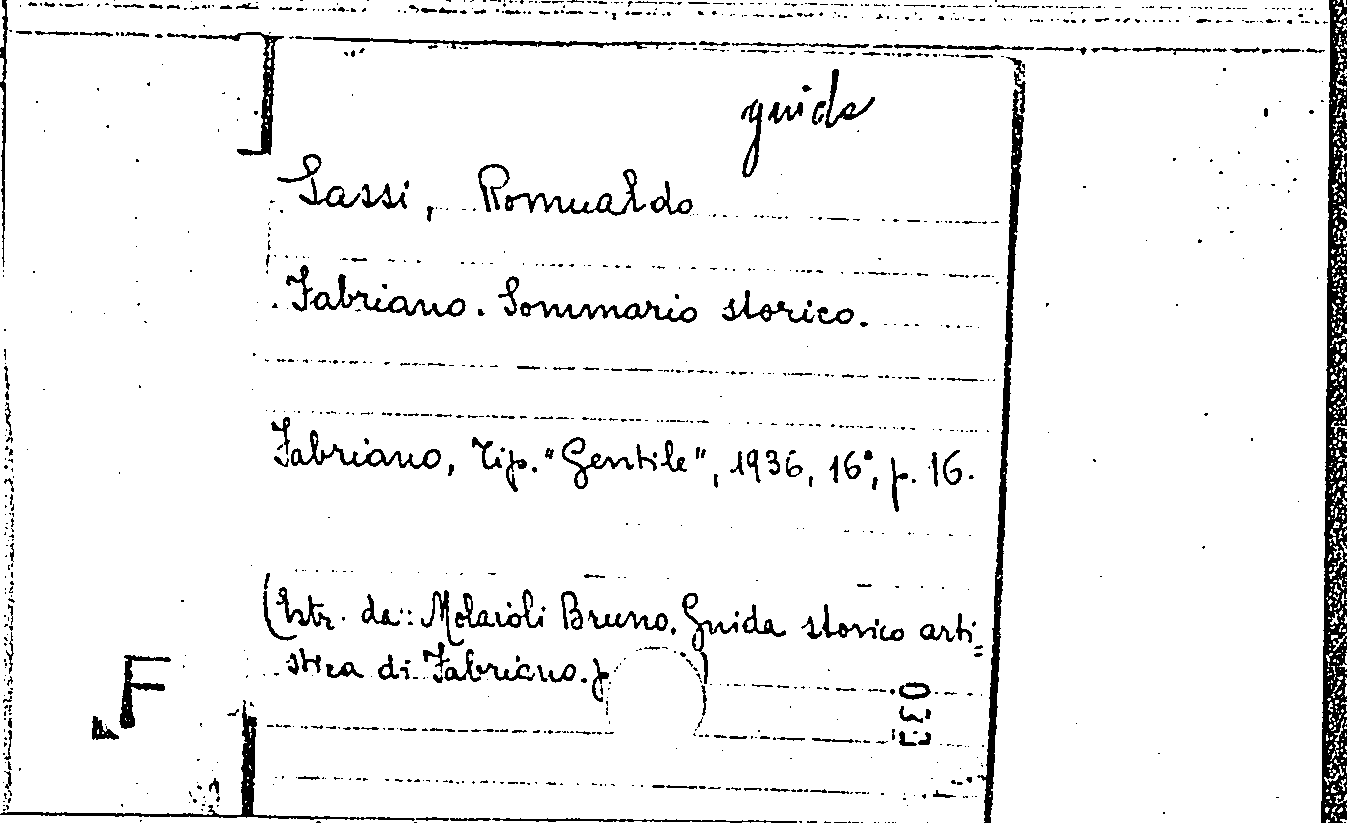 guida
Sassi, Romualdo
Fabriano. Sommario storico.
Fabriano, Tip. "Gentile", 1936, 16°, p. 16.
(Estr. da: Molaioli Bruno. Guida storico arti=
stica di Fabriano. p )
F